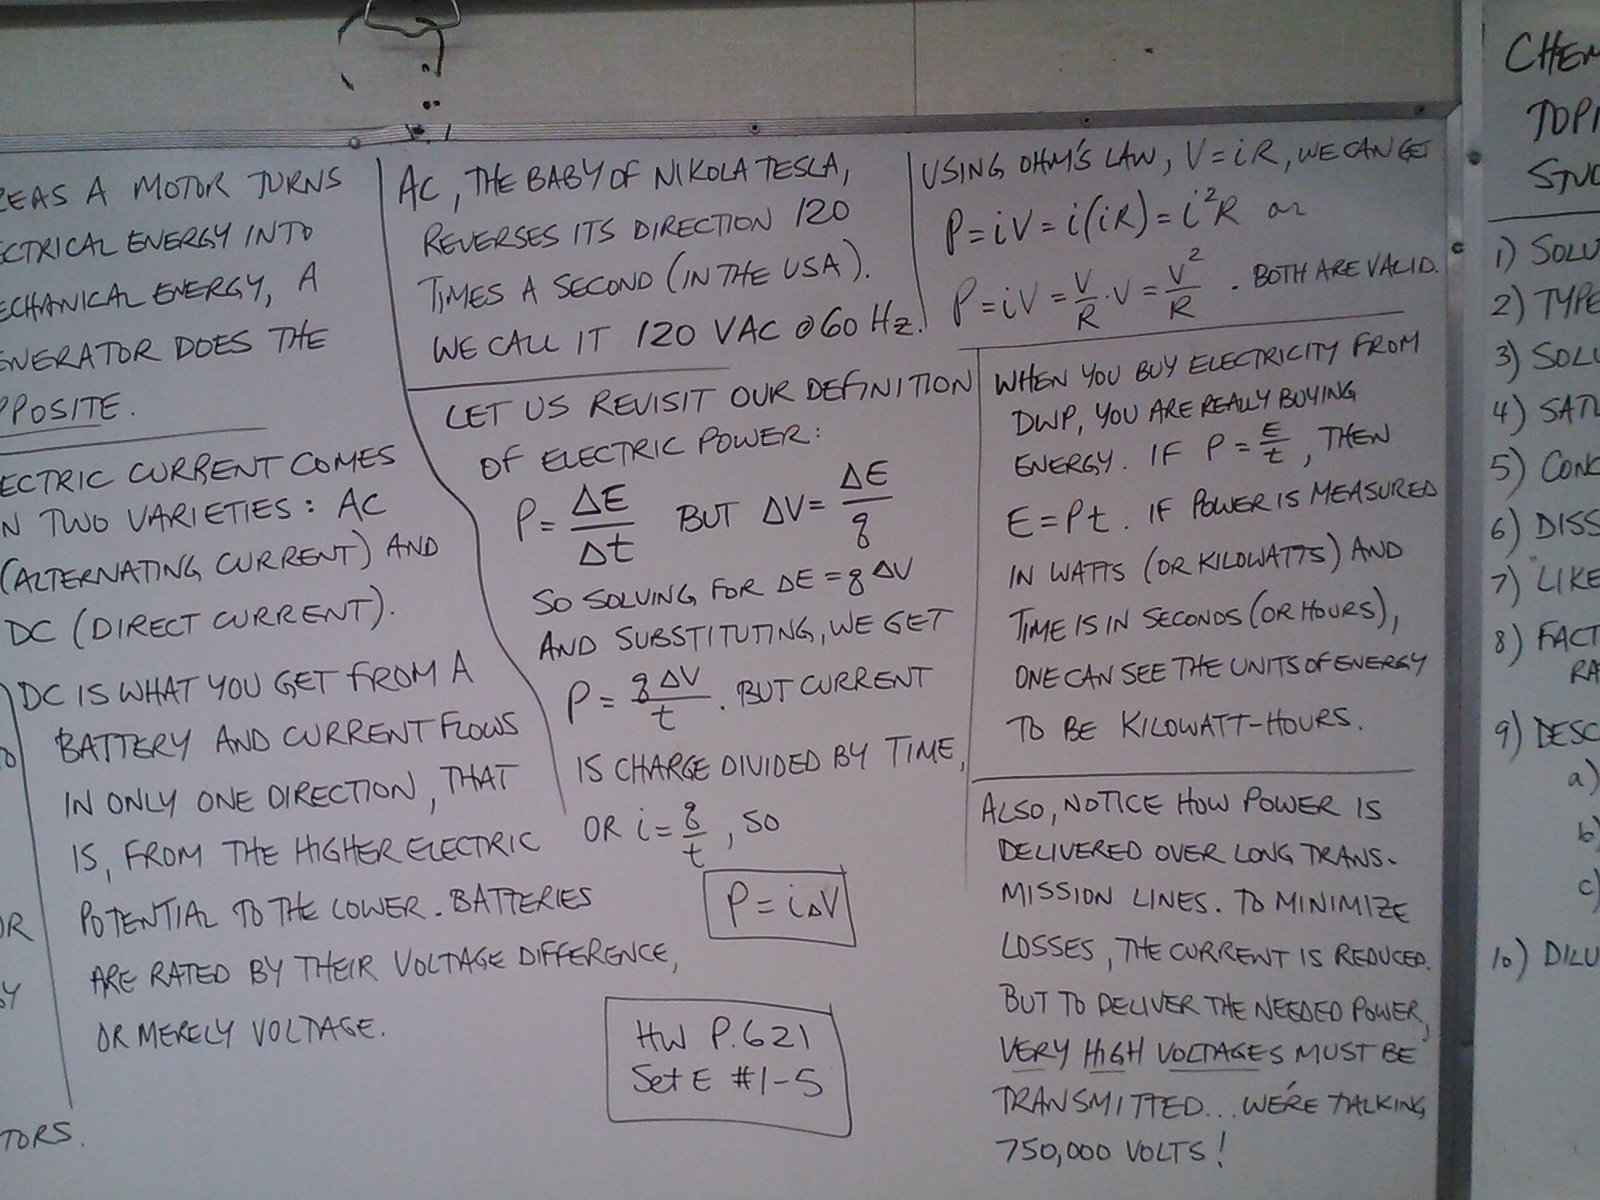 REAS A MOTOR TURNS
ECTRICAL ENERGY INTO
ECHANICAL ENERGY, A
ENERATOR DOES THE
PPOSITE.
ECTRIC CURRENT COMES
N TWO VARIETIES: AC
(ALTERNATING CURRENT) AND
DC (DIRECT CURRENT).
DC IS WHAT YOU GET FROM A
BATTERY AND CURRENT FLOWS
IN ONLY ONE DIRECTION, THAT
IS, FROM THE HIGHER ELECTRIC
POTENTIAL TO THE LOWER. BATTERIES
ARE RATED BY THEIR VOLTAGE DIFFERENCE,
OR MERELY VOLTAGE.
OR
TORS.
AC, THE BABY OF NIKOLA TESLA,
REVERSES ITS DIRECTION 120
TIMES A SECOND (IN THE USA).
WE CALL IT 120 VAC @ 60 Hz.
LET US REVISIT OUR DEFINITION
OF ELECTRIC POWER:
P = ΔE/Δt BUT ΔV = ΔE/q
SO SOLVING FOR ΔE = q ΔV
AND SUBSTITUTING, WE GET
P = qΔV/t . BUT CURRENT
IS CHARGE DIVIDED BY TIME,
OR i = q/t , SO
P = iΔV
HW P. 621
Set E #1-5
USING OHM'S LAW, V = iR, WE CAN GET
P = iV = i(iR) = i²R or
P = iV = V/R · V = V²/R . BOTH ARE VALID.
WHEN YOU BUY ELECTRICITY FROM
DWP, YOU ARE REALLY BUYING
ENERGY. IF P = E/t , THEN
E = Pt. IF POWER IS MEASURED
IN WATTS (OR KILOWATTS) AND
TIME IS IN SECONDS (OR HOURS),
ONE CAN SEE THE UNITS OF ENERGY
TO BE KILOWATT-HOURS.
ALSO, NOTICE HOW POWER IS
DELIVERED OVER LONG TRANS-
MISSION LINES. TO MINIMIZE
LOSSES, THE CURRENT IS REDUCED.
BUT TO DELIVER THE NEEDED POWER,
VERY HIGH VOLTAGES MUST BE
TRANSMITTED... WE'RE TALKING
750,000 VOLTS!
CHEM
TOPI
STUD
1) SOLU
2) TYPE
3) SOLU
4) SATU
5) CONC
6) DISS
7) LIKE
8) FACT
RA
9) DESC
a)
b)
c)
10) DILU